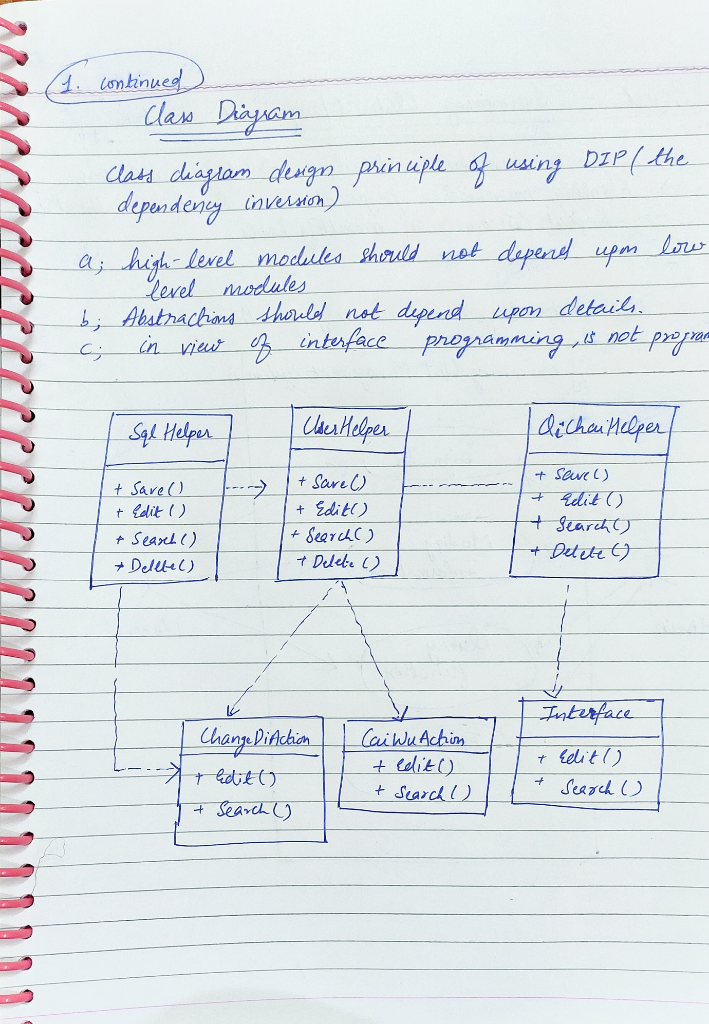 1. continued
Class Diagram
Class diagram design principle of using DIP (the
dependency inversion)
a; high-level modules should not depend upon low
level modules
b; Abstractions should not depend upon details.
c; in view of interface programming, is not program
Sql Helper
+ Save()
+ Edit()
+ Search()
+ Delete()
UserHelper
+ Save()
+ Edit()
+ Search()
+ Delete()
QiChaiHelper
+ Save()
+ Edit()
+ Search()
+ Delete()
ChangeDiAction
+ Edit()
+ Search()
CaiWuAction
+ Edit()
+ Search()
Interface
+ Edit()
+ Search()